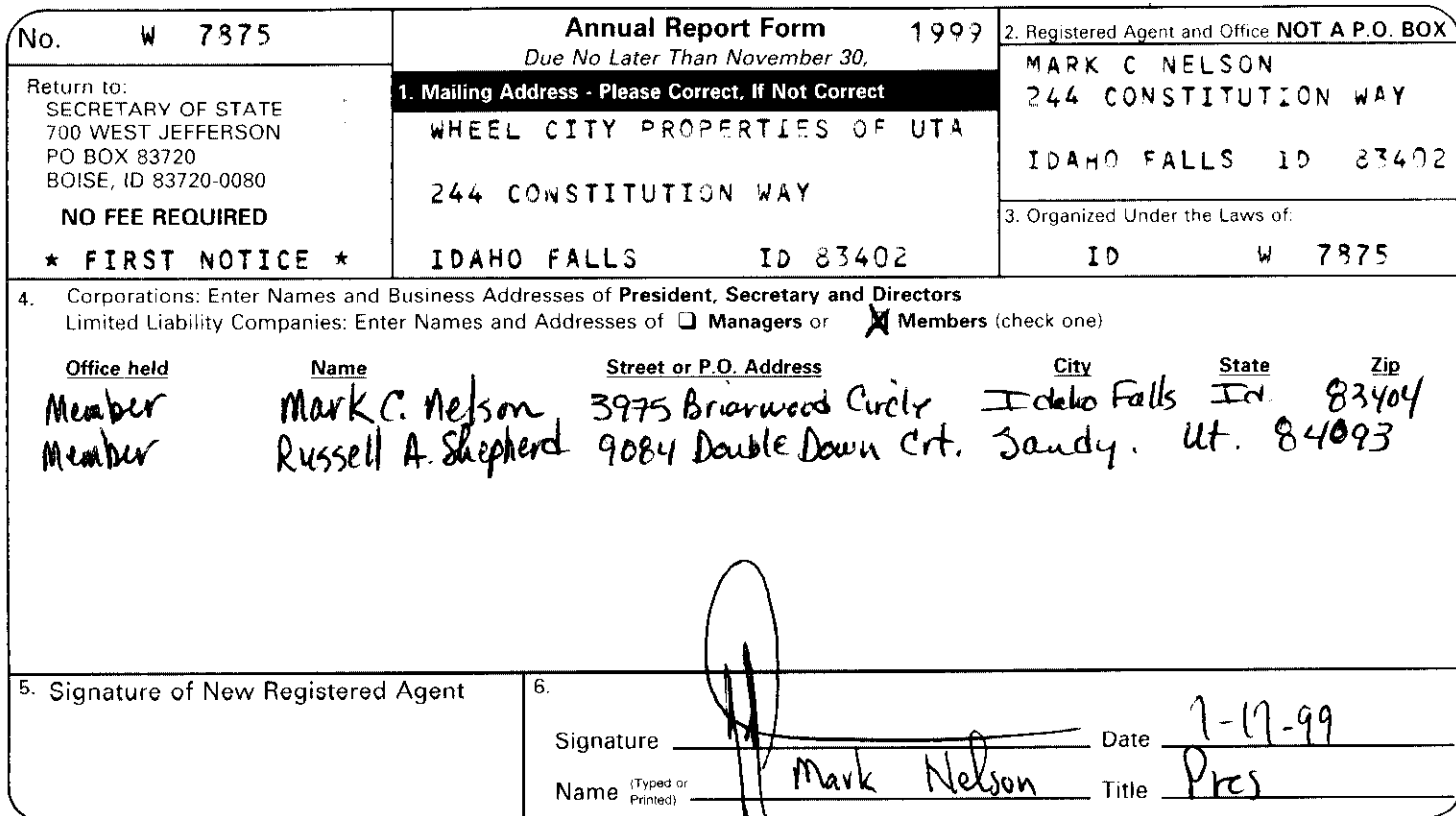 No. W 7875
Annual Report Form 1999
Due No Later Than November 30,
Return to:
SECRETARY OF STATE
700 WEST JEFFERSON
PO BOX 83720
BOISE, ID 83720-0080
NO FEE REQUIRED
* FIRST NOTICE *
1. Mailing Address - Please Correct, If Not Correct
WHEEL CITY PROPERTIES OF UTA
244 CONSTITUTION WAY
IDAHO FALLS ID 83402
2. Registered Agent and Office NOT A P.O. BOX
MARK C NELSON
244 CONSTITUTION WAY
IDAHO FALLS ID 83402
3. Organized Under the Laws of:
ID W 7875
4. Corporations: Enter Names and Business Addresses of President, Secretary and Directors
Limited Liability Companies: Enter Names and Addresses of ❑ Managers or ☒ Members (check one)
Office held Name Street or P.O. Address City State Zip
Member Mark C. Nelson 3975 Briarwood Circle Idaho Falls Id. 83404
Member Russell A. Shepherd 9084 Double Down Crt. Sandy. Ut. 84093
5. Signature of New Registered Agent
6.
Signature Date
Name (Typed or Printed) Mark Nelson Title Pres